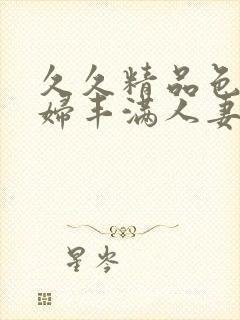 久久精品色
婦丰满人妻
星岑